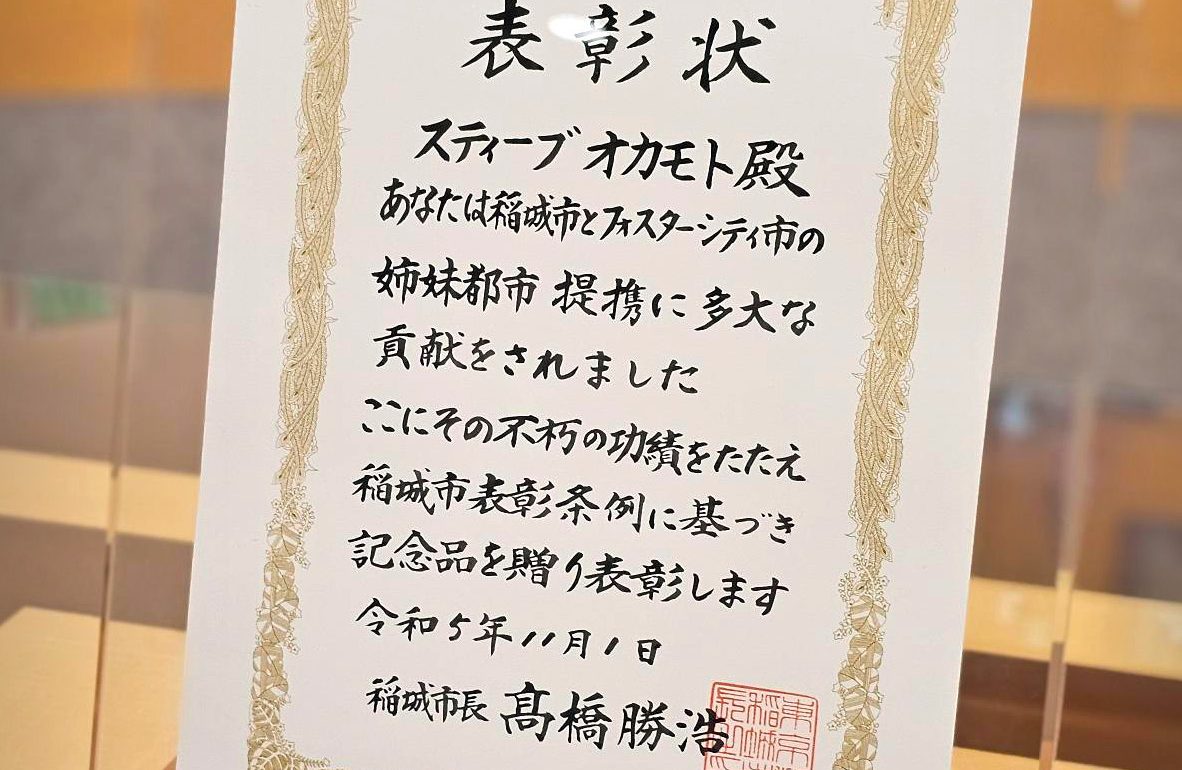 表彰状
スティーブ オカモト殿
あなたは稲城市とフォスターシティ市の
姉妹都市 提携に多大な
貢献をされました
ここにその不朽の功績をたたえ
稲城市表彰条例に基づき
記念品を贈り表彰します
令和5年11月1日
稲城市長 髙橋勝浩
東京
稲城
長